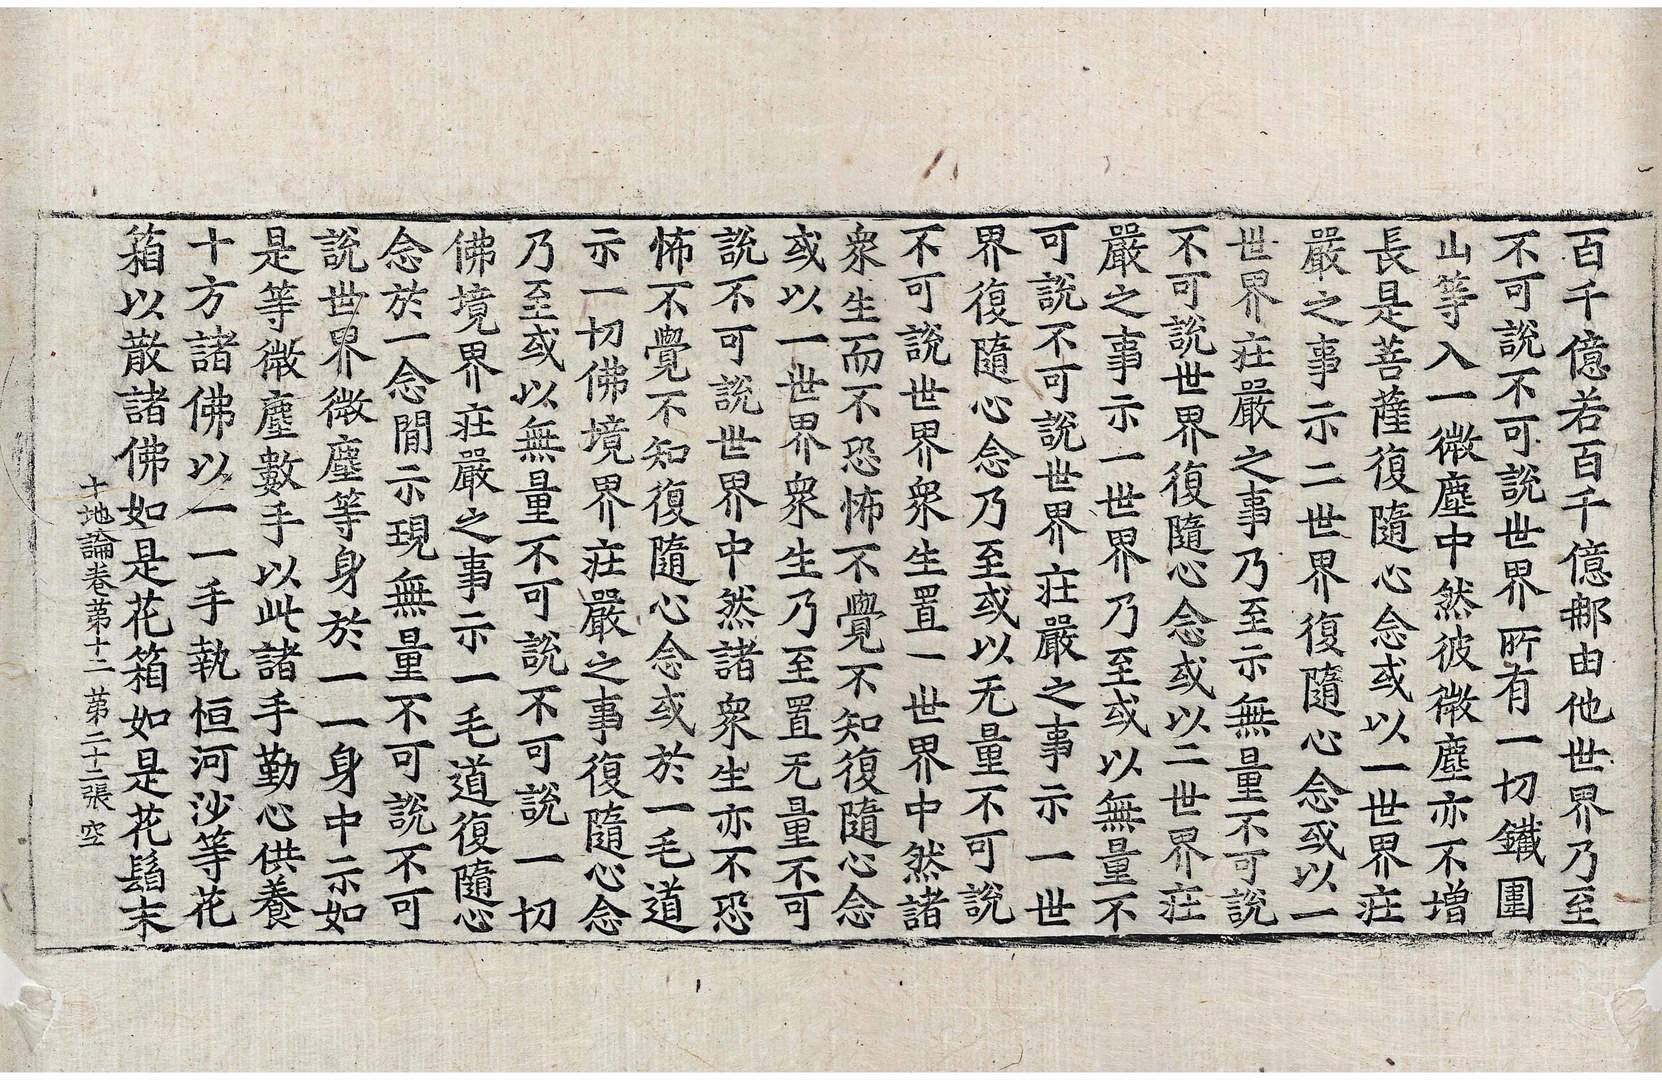 百千億若百千億那由他世界乃至
不可說不可說世界所有一切鐵圍
山等入一微塵中然彼微塵亦不增
長是菩薩復隨心念或以一世界莊
嚴之事示二世界復隨心念或以一
世界莊嚴之事乃至示無量不可說
不可說世界復隨心念或以二世界莊
嚴之事示一世界乃至或以無量不
可說不可說世界莊嚴之事示一世
界復隨心念乃至或以无量不可說
不可說世界衆生置一世界中然諸
衆生而不恐怖不覺不知復隨心念
或以一世界衆生乃至置无量不可
說不可說世界中然諸衆生亦不恐
怖不覺不知復隨心念或於一毛道
示一切佛境界莊嚴之事復隨心念
乃至或以無量不可說不可說一切
佛境界莊嚴之事示一毛道復隨心
念於一念閒示現無量不可說不可
說世界微塵等身於一一身中示如
是等微塵數手以此諸手勤心供養
十方諸佛以一一手執恒河沙等花
箱以散諸佛如是花箱如是花鬘末
十地論卷苐十二 苐二十二張 空